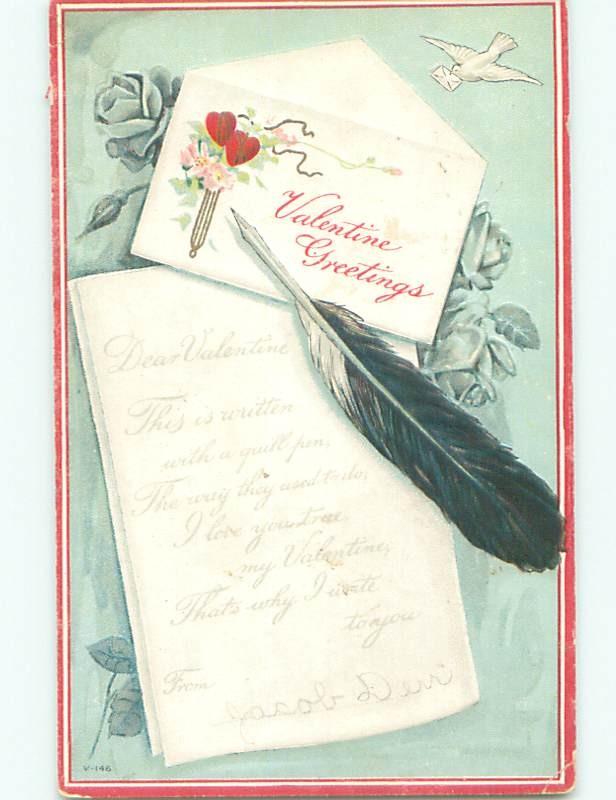 Valentine
Greetings
Dear Valentine
This is written
with a quill pen,
The way they used to do,
I love you true,
my Valentine,
That's why I write
to you
From
V-146